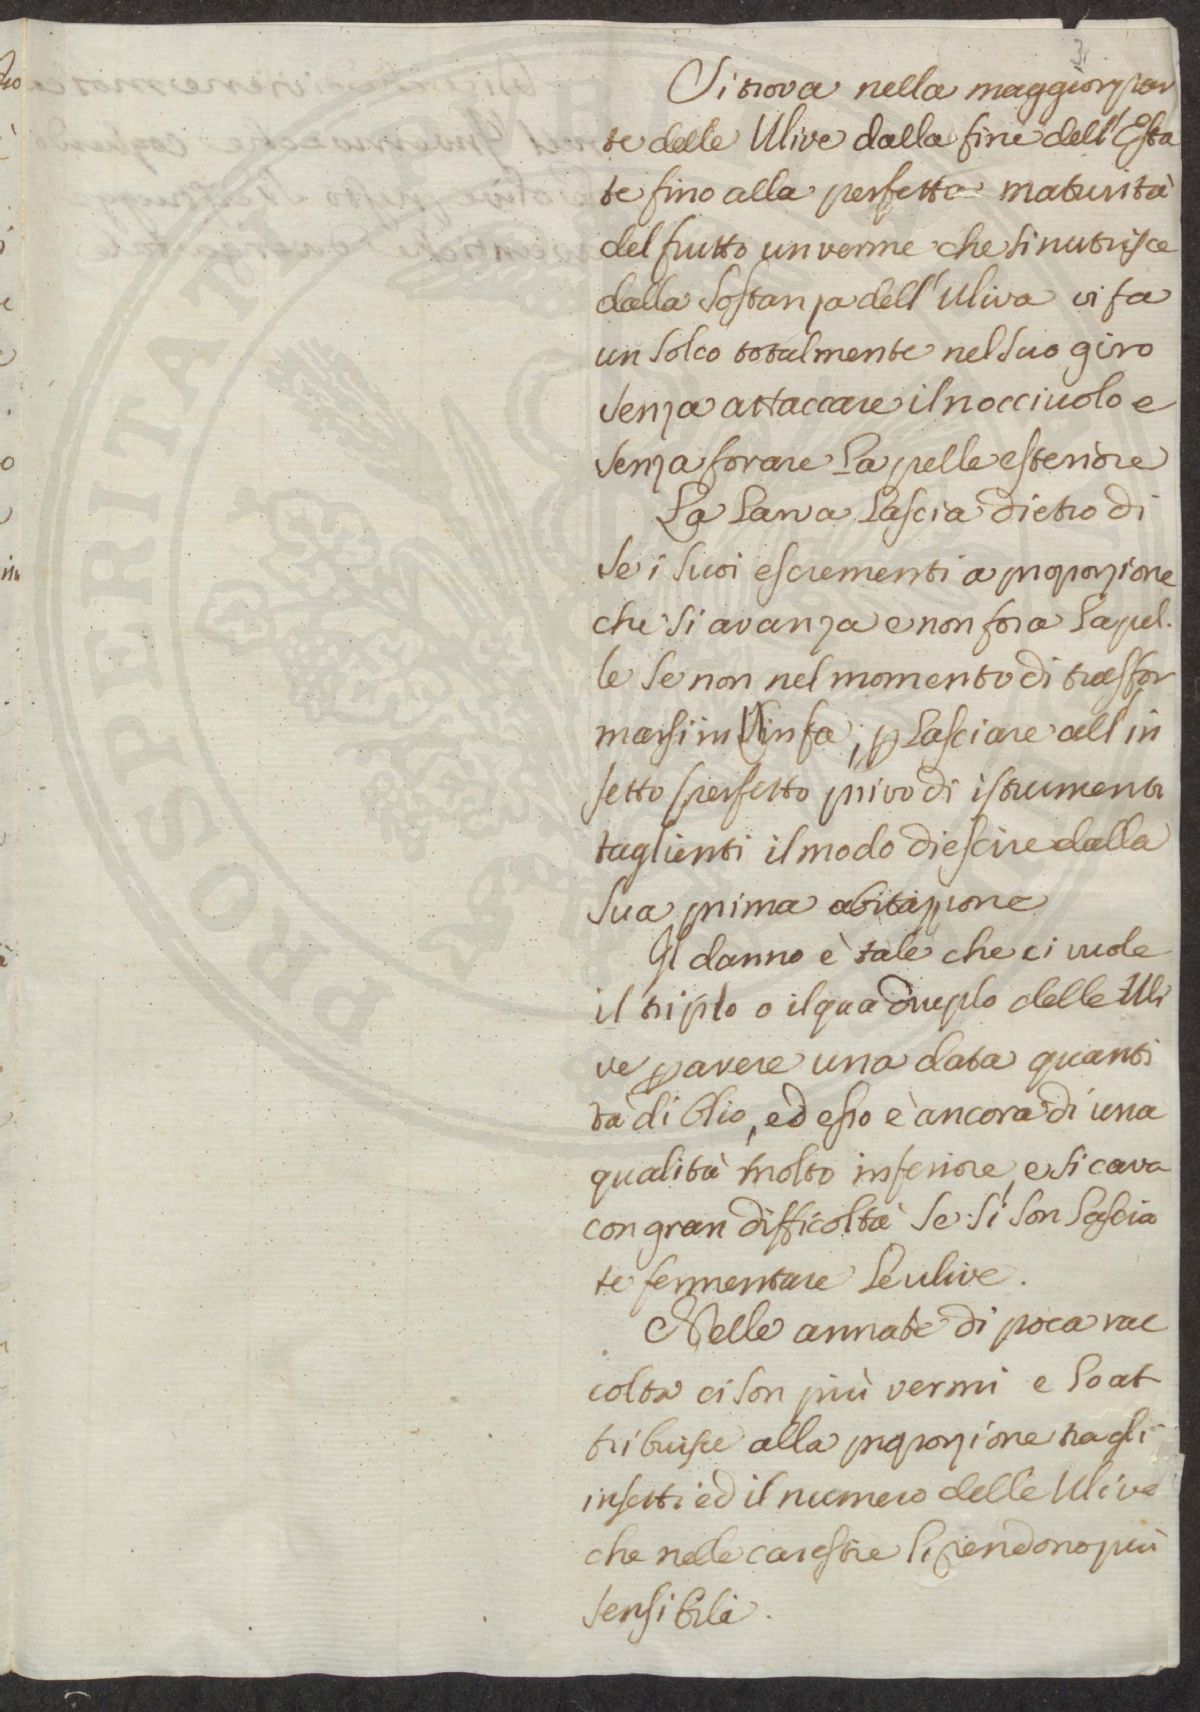 3
Si trova nella maggior par
te delle Ulive dalla fine dell'Esta
te fino alla perfetta maturità
del frutto un verme che si nutrisce
dalla sostanza dell'Uliva vi fa
un solco totalmente nel suo giro
senza attaccare il nocciuolo e
senza forare la pelle esteriore
La Larva lascia dietro di
se i suoi escrementi a proporzione
che si avanza e non fora la pel-
le se non nel momento di trasfor
marsi in Ninfa, p lasciare all'in
setto perfetto privo di istrumenti
taglienti il modo di escire dalla
sua prima abitazione
Il danno è tale che ci vuole
il triplo o il quadruplo delle Uli
ve p avere una data quanti
tà di Olio, ed esso è ancora di una
qualità molto inferiore, e si cava
con gran difficoltà se si son lascia
te fermentare le ulive.
Nelle annate di poca rac
colta ci son più vermi e lo at
tribuisce alla proporzione tra gli
insetti ed il numero delle Ulive
che nelle carestie li rendono più
sensibili.
PROSPERITATI